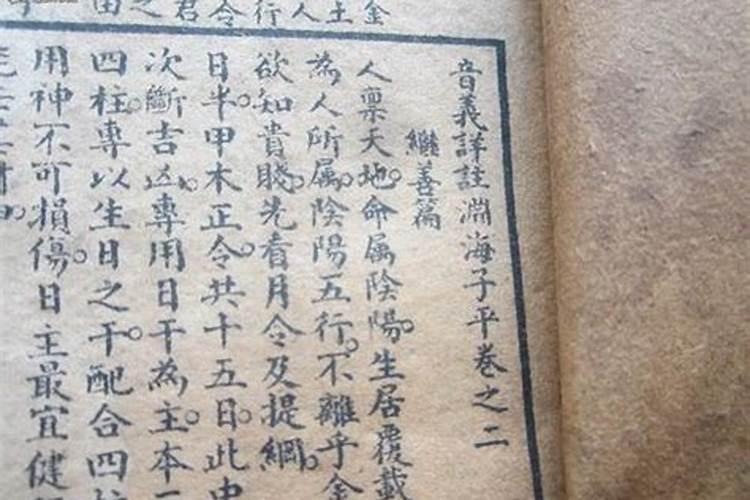 音義詳註淵海子平卷之二
繼善篇
人禀天地。命属陰陽。生居覆載
為人所属。陰陽五行。不離乎金
欲知貴賤。先看月令及提綱。
日半。甲木正令。共十五日。此中
次斷吉凶。專用日干為主。本
四柱。專以生日之干。配合四柱
用神不可損傷。日主最宜健